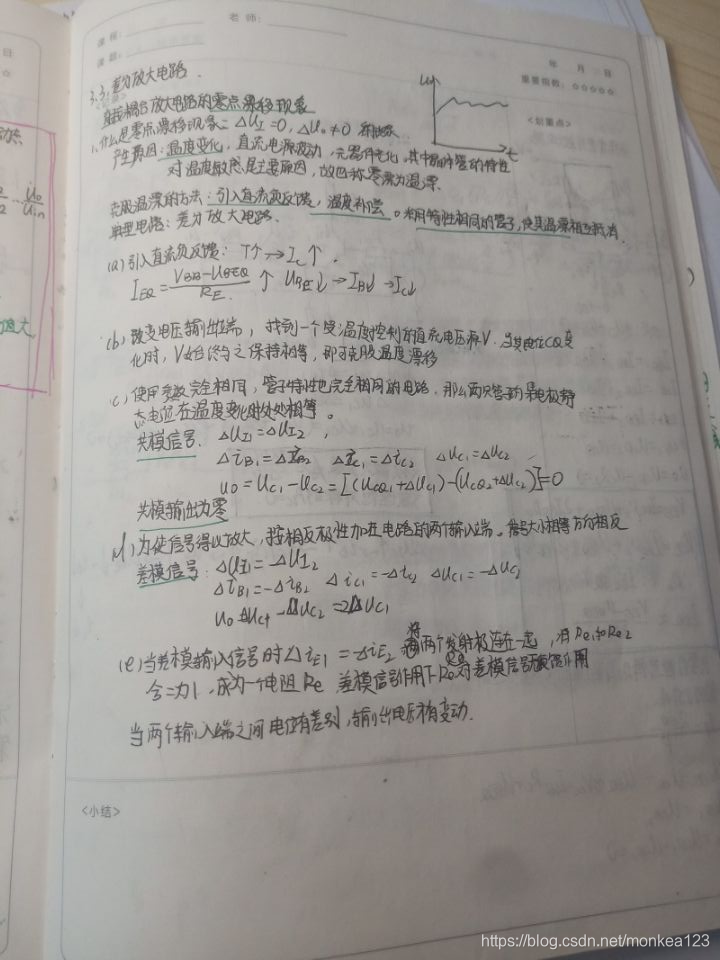 课程:
老师:
课题:
年 月 日
重要指数: ☆☆☆☆☆
<划重点>
3.3.差分放大电路.
直接耦合放大电路的零点漂移现象
1.什么是零点漂移现象: ΔUI=0, ΔUo≠0 的现象
产生原因:温度变化,直流电源波动,元器件老化,其中晶体管的特性
对温度敏感是主要原因,故也称零漂为温漂.
克服温漂的方法:引入直流负反馈,温度补偿
典型电路:差分放大电路.
。采用特性相同的管子,使其温漂相互抵消.
(a)引入直流负反馈: T↑→IC↑.
IEQ=(VBB-UBEQ)/RE ↑ UBE↓→IB↓→IC↓
(b)改变电压输出端,找到一个受温度控制的直流电压源V.当其电位CQ变
化时,V始终与之保持相等,即可克服温度漂移
(c)使用参数完全相同,管子特性也完全相同的电路.那么两只管子的集电极静
态电位在温度变化时处处相等。
共模信号. ΔUI1=ΔUI2,
ΔiB1=ΔiB2 ΔiC1=ΔiC2 ΔuC1=ΔuC2
uo=uC1-uC2=[(UCQ1+ΔuC1)-(UCQ2+ΔuC2)]=0
共模输出为零
(d)为使信号得以放大,按相反极性加在电路的两个输入端。信号大小相等方向相反
差模信号: ΔUI1=-ΔUI2
ΔiB1=-ΔiB2 ΔiC1=-ΔiC2 ΔuC1=-ΔuC2
uo=ΔuC1-ΔuC2=2ΔuC1
(e)当差模输入信号时ΔiE1=-ΔiE2 将两个发射极连在一起,将Re1和Re2
合二为1,成为一个电阻Re.差模信号作用下Re对差模信号无反馈作用
当两个输入端之间电位有差别,输出电压才有变动.
<小结>
https://blog.csdn.net/monkea123